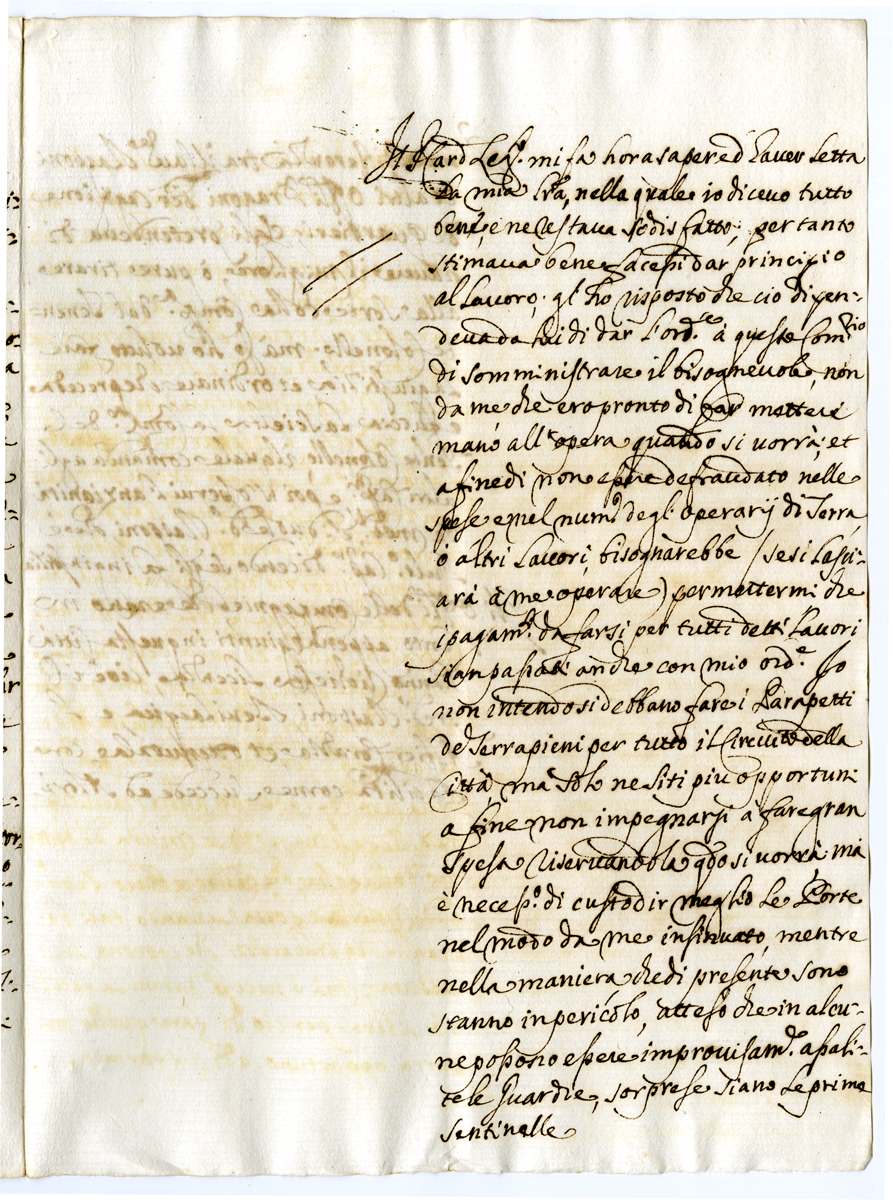 Il Card Leg.º mi fa hora sapere d'haver letta
la mia lrã, nella quale io dicevo tutto
bene, e ne restava sodisfatto; per tanto
stimava bene facessi dar principio
al lavoro; gl'hò risposto che ciò dipen-
deva da lui di dar l'ord.e à questo Com.rio
di somministrare il bisognevole, non
da me che ero pronto di far mettere
mano all'opera quando si vorrà; et
a fine di non essere defraudato nelle
spese e nel num.º degl'operarij di Terra
ò altri lavori, bisognarebbe (se si lasci-
arà à me operare) permettermi che
i pagam.ti da farsi per tutti detti lavori
sian passati anche con mio ord.e Io
non intendo si debbano fare i Parapetti
de Terrapieni per tutto il Circuito della
Città, mà solo ne siti più opportuni
a fine non impegnarsi à fare gran
spesa riservandola qdo si vorrà; mà
è necess.º di custodir meglio le Porte
nel modo da me insinuato, mentre
nella maniera che di presente sono
stanno in pericolo, atteso che in alcu-
ne possono essere improvisam.te assali-
te le Guardie, sorprese siano le prime
sentinelle